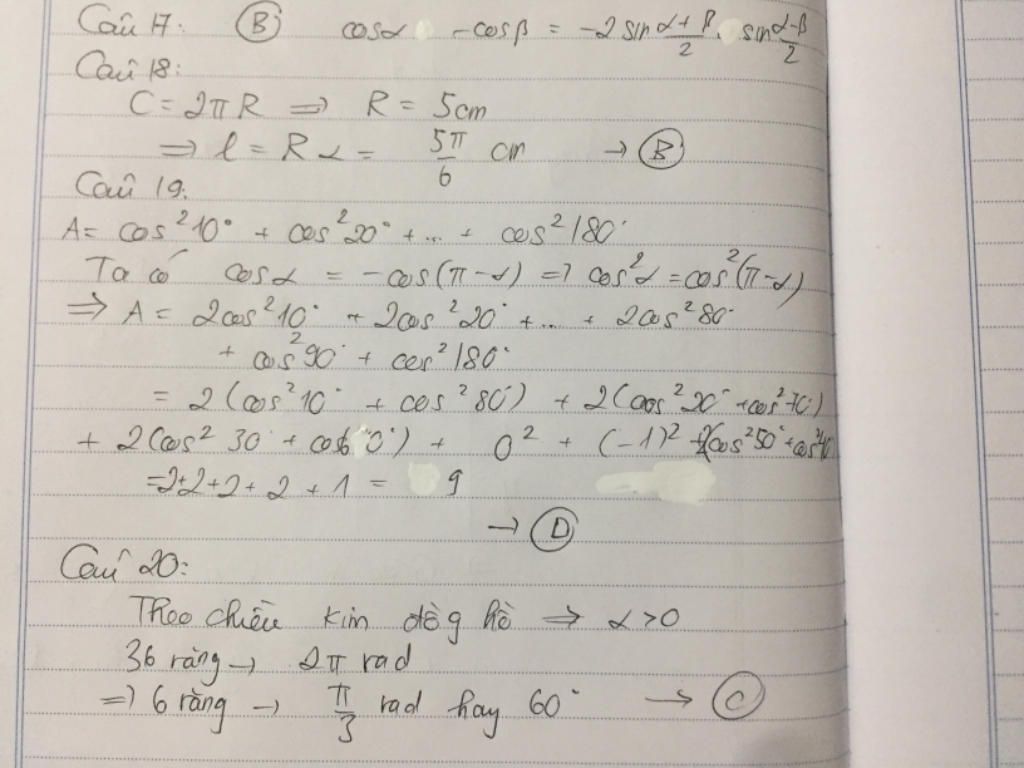 Câu 17: Ⓑ cosα - cosβ = -2 sin (α+β)/2 . sin (α-β)/2
Câu 18:
C = 2πR ⇒ R = 5cm
⇒ l = Rα = 5π/6 cm → Ⓑ
Câu 19:
A = cos²10° + cos²20° + ... + cos²180°
Ta có cosα = -cos(π-α) ⇒ cos²α = cos²(π-α)
⇒ A = 2cos²10° + 2cos²20° + ... + 2cos²80°
+ cos²90° + cos²180°
= 2(cos²10° + cos²80°) + 2(cos²20° + cos²70°)
+ 2(cos²30° + cos60°) + 0² + (-1)² + 2(cos²50° + cos²40°
= 2+2+2+2+1 = 9
→ Ⓓ
Câu 20:
Theo chiều kim đồg hồ ⇒ α > 0
36 răng → 2π rad
⇒ 6 răng → π/3 rad hay 60° → Ⓒ